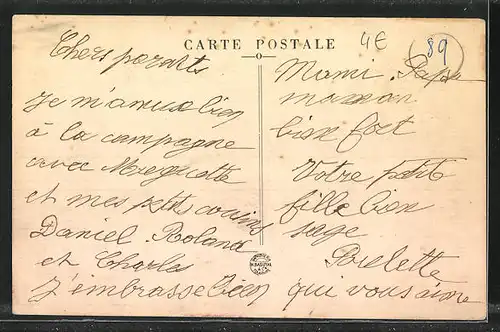 CARTE POSTALE
4€
89
Chers parents
Je m'amuse bien
à la campagne
avec Merguette
et mes petits cousins
Daniel. Roland
et Charles
J'embrasse bien
Mami. Papa
maman
bien fort
Votre petite
fille bien
sage
Arlette
qui vous aime